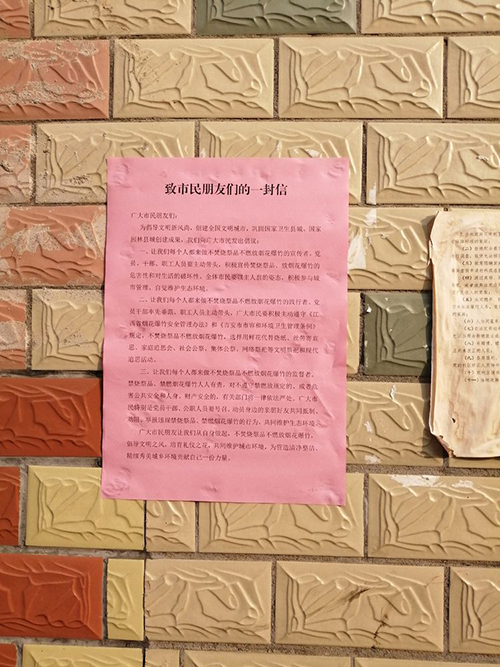 致市民朋友们的一封信
广大市民朋友们：
为倡导文明新风尚，创建全国文明城市，巩固国家卫生县城、国
家园林县城创建成果，我们向广大市民发出倡议：
一、让我们每个人都来做不焚烧祭品不燃放烟花爆竹的宣传者。党
员、干部、职工人员要主动带头，积极宣传焚烧祭品、放烟花爆竹的
危害性和对生活的破坏性。全体市民要以主人翁的姿态，积极参与城
市管理，自觉维护生态环境。
二、让我们每个人都来做不焚烧祭品不燃放烟花爆竹的践行者。党
员干部率先垂范，职工人员主动带头，广大市民要积极主动遵守《江
西省烟花爆竹安全管理办法》和《吉安市市容和环境卫生管理条例》
规定，不焚烧祭品不燃放烟花爆竹。选择用鲜花代替烧纸、丝带寄哀
思、家庭追思会、社会公祭、集体公祭、网络祭祀等文明祭祀和现代
追思活动。
三、让我们每个人都来做不焚烧祭品不燃放烟花爆竹的监督者。
禁烧祭品、禁燃烟花爆竹人人有责，对不遵守禁燃放规定的，或者危
害公共安全和人身、财产安全的，有关部门将一律依法严处。广大市
民特别是党员干部、公职人员要号召、动员身边的亲朋好友共同抵制、
劝阻、举报违规焚烧祭品、禁燃烟花爆竹的行为，共同维护生态环境。
广大市民朋友让我们从自身做起，不焚烧祭品不燃放烟花爆竹，
倡导文明之风，培育礼仪之花，共同维护城市环境，为营造洁净整洁、
精细秀美城乡环境贡献自己一份力量。